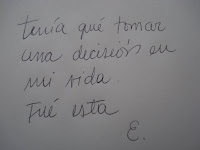 tenía qué tomar
una decisión en
mi vida.
Fué esta
E.